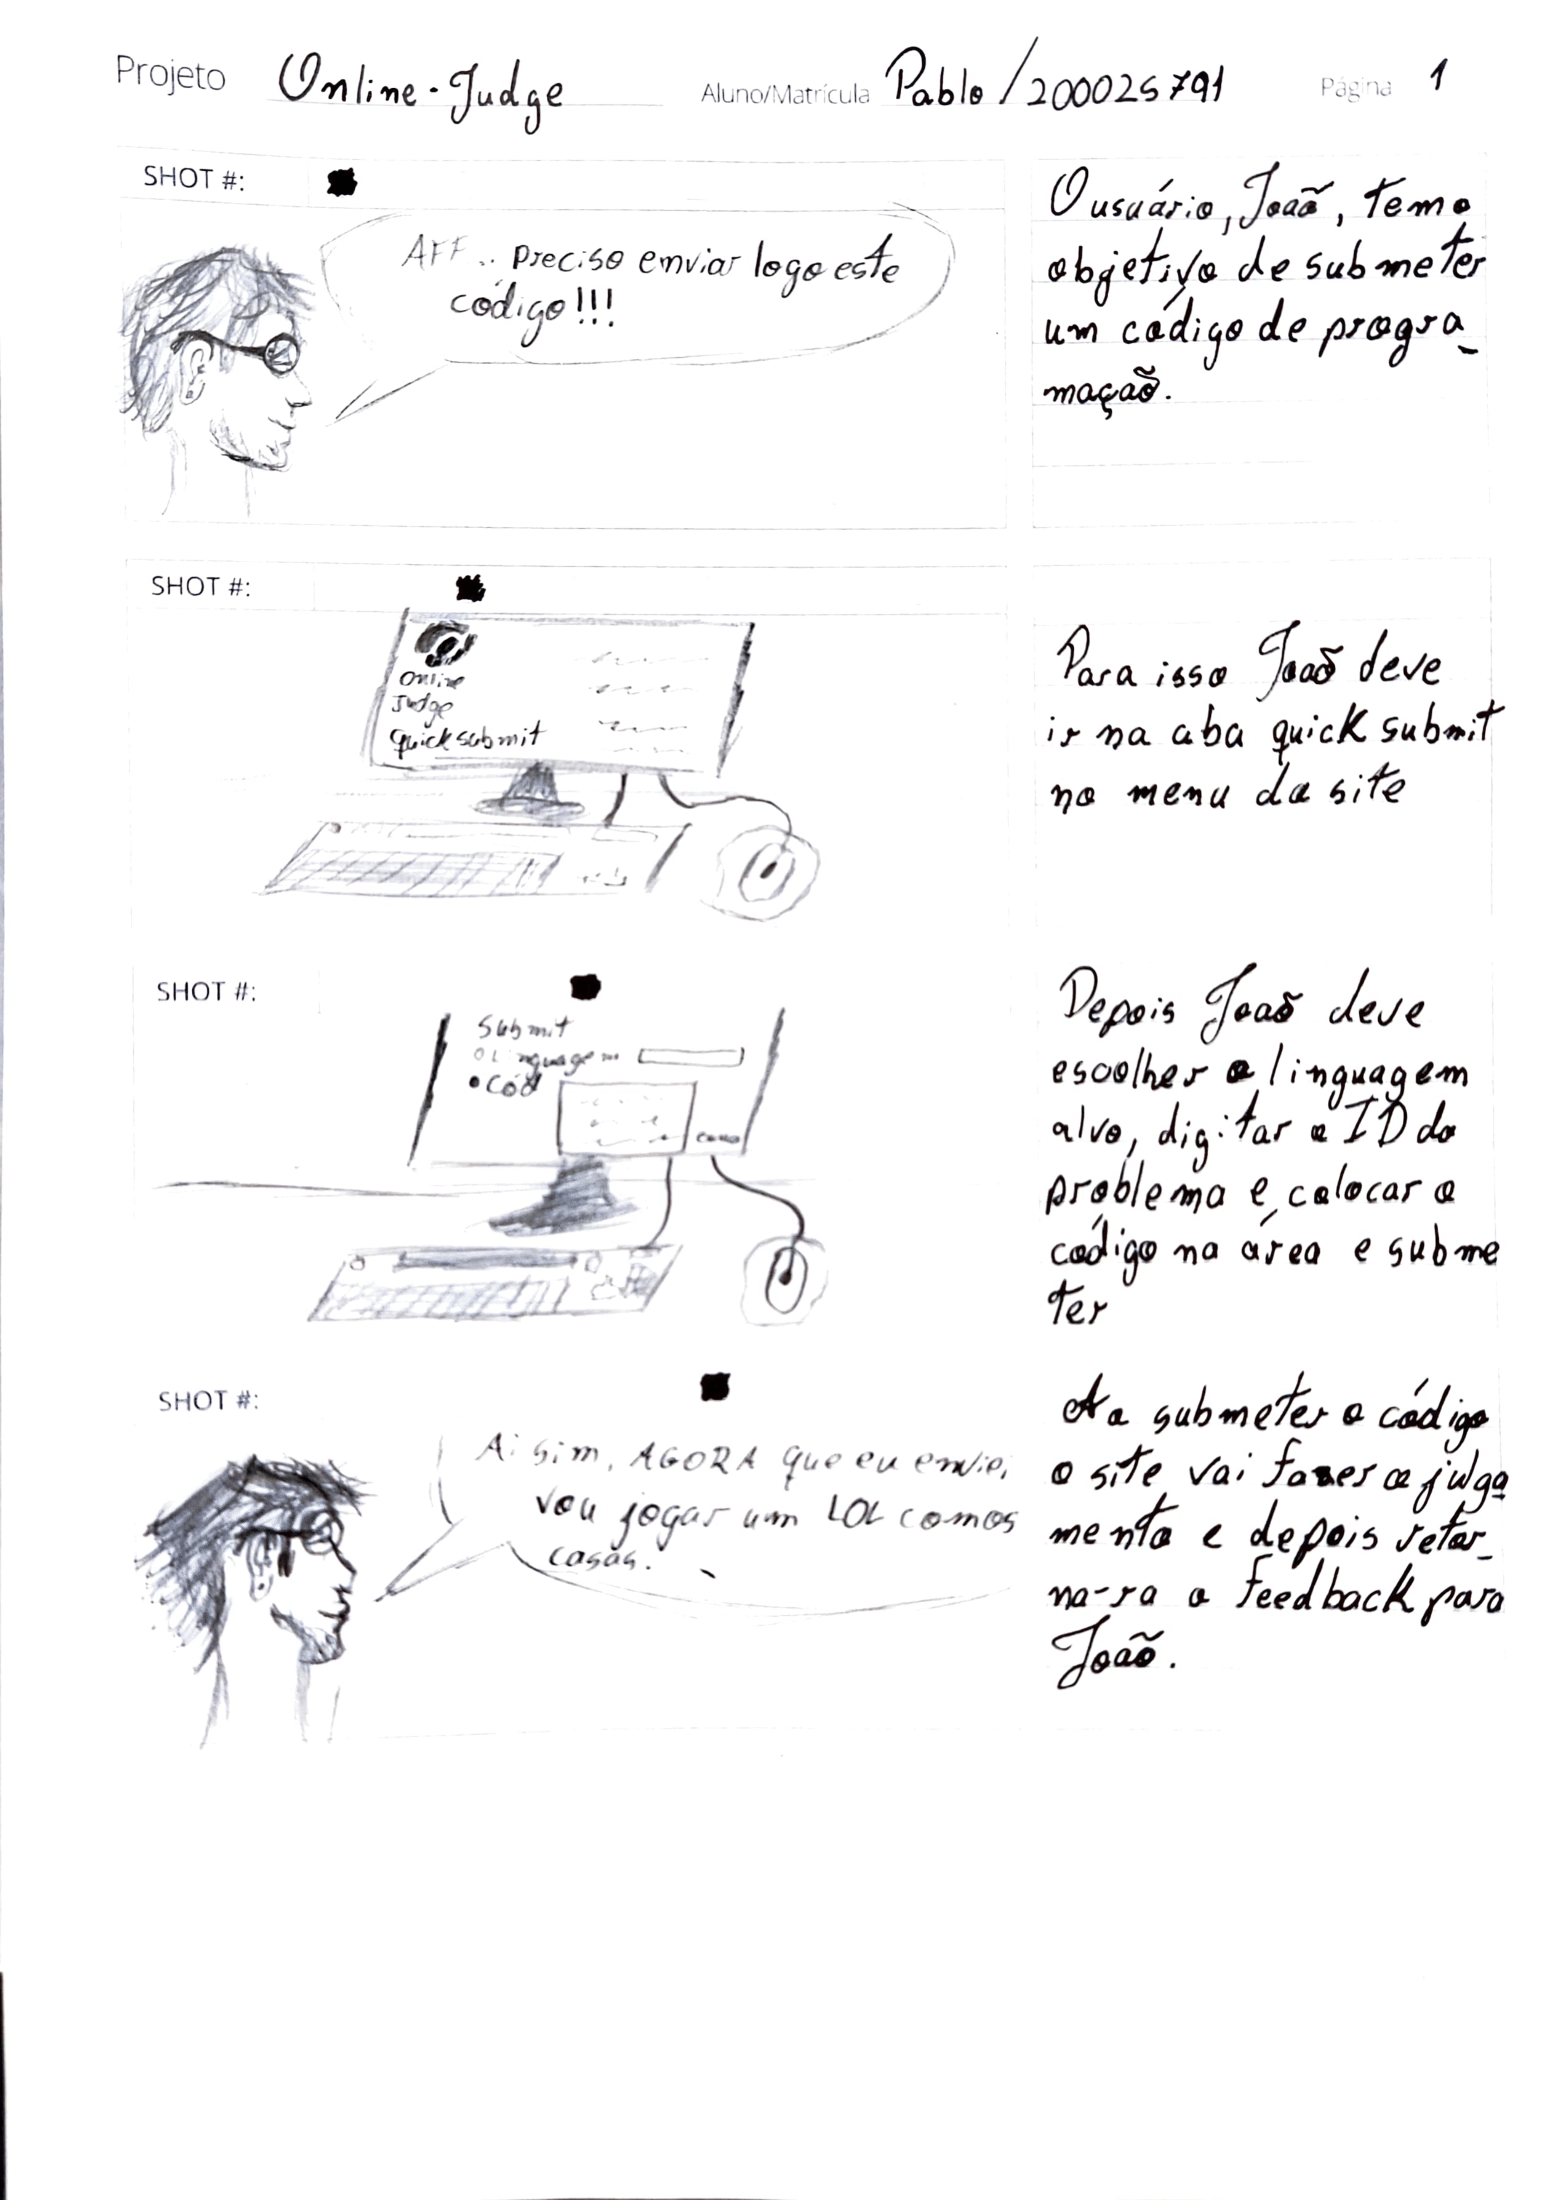 Projeto Online-Judge Aluno/Matrícula Pablo/200025791 Página 1
SHOT #:
AFF.. preciso enviar logo este
código!!!
O usuário, João, tem o
objetivo de submeter
um código de progra-
mação.
SHOT #:
Online
Judge
quick submit
Para isso João deve
ir na aba quick submit
no menu do site
SHOT #:
Submit
Linguagem
Cód
Depois João deve
escolher a linguagem
alvo, digitar o ID do
problema e, colocar o
código na área e subme
ter
SHOT #:
Ai sim, AGORA que eu enviei,
vou jogar um LOL com os
casas.
Ao submeter o código
o site vai fazer o julga
mento e depois retor-
na-ra o feedback para
João.